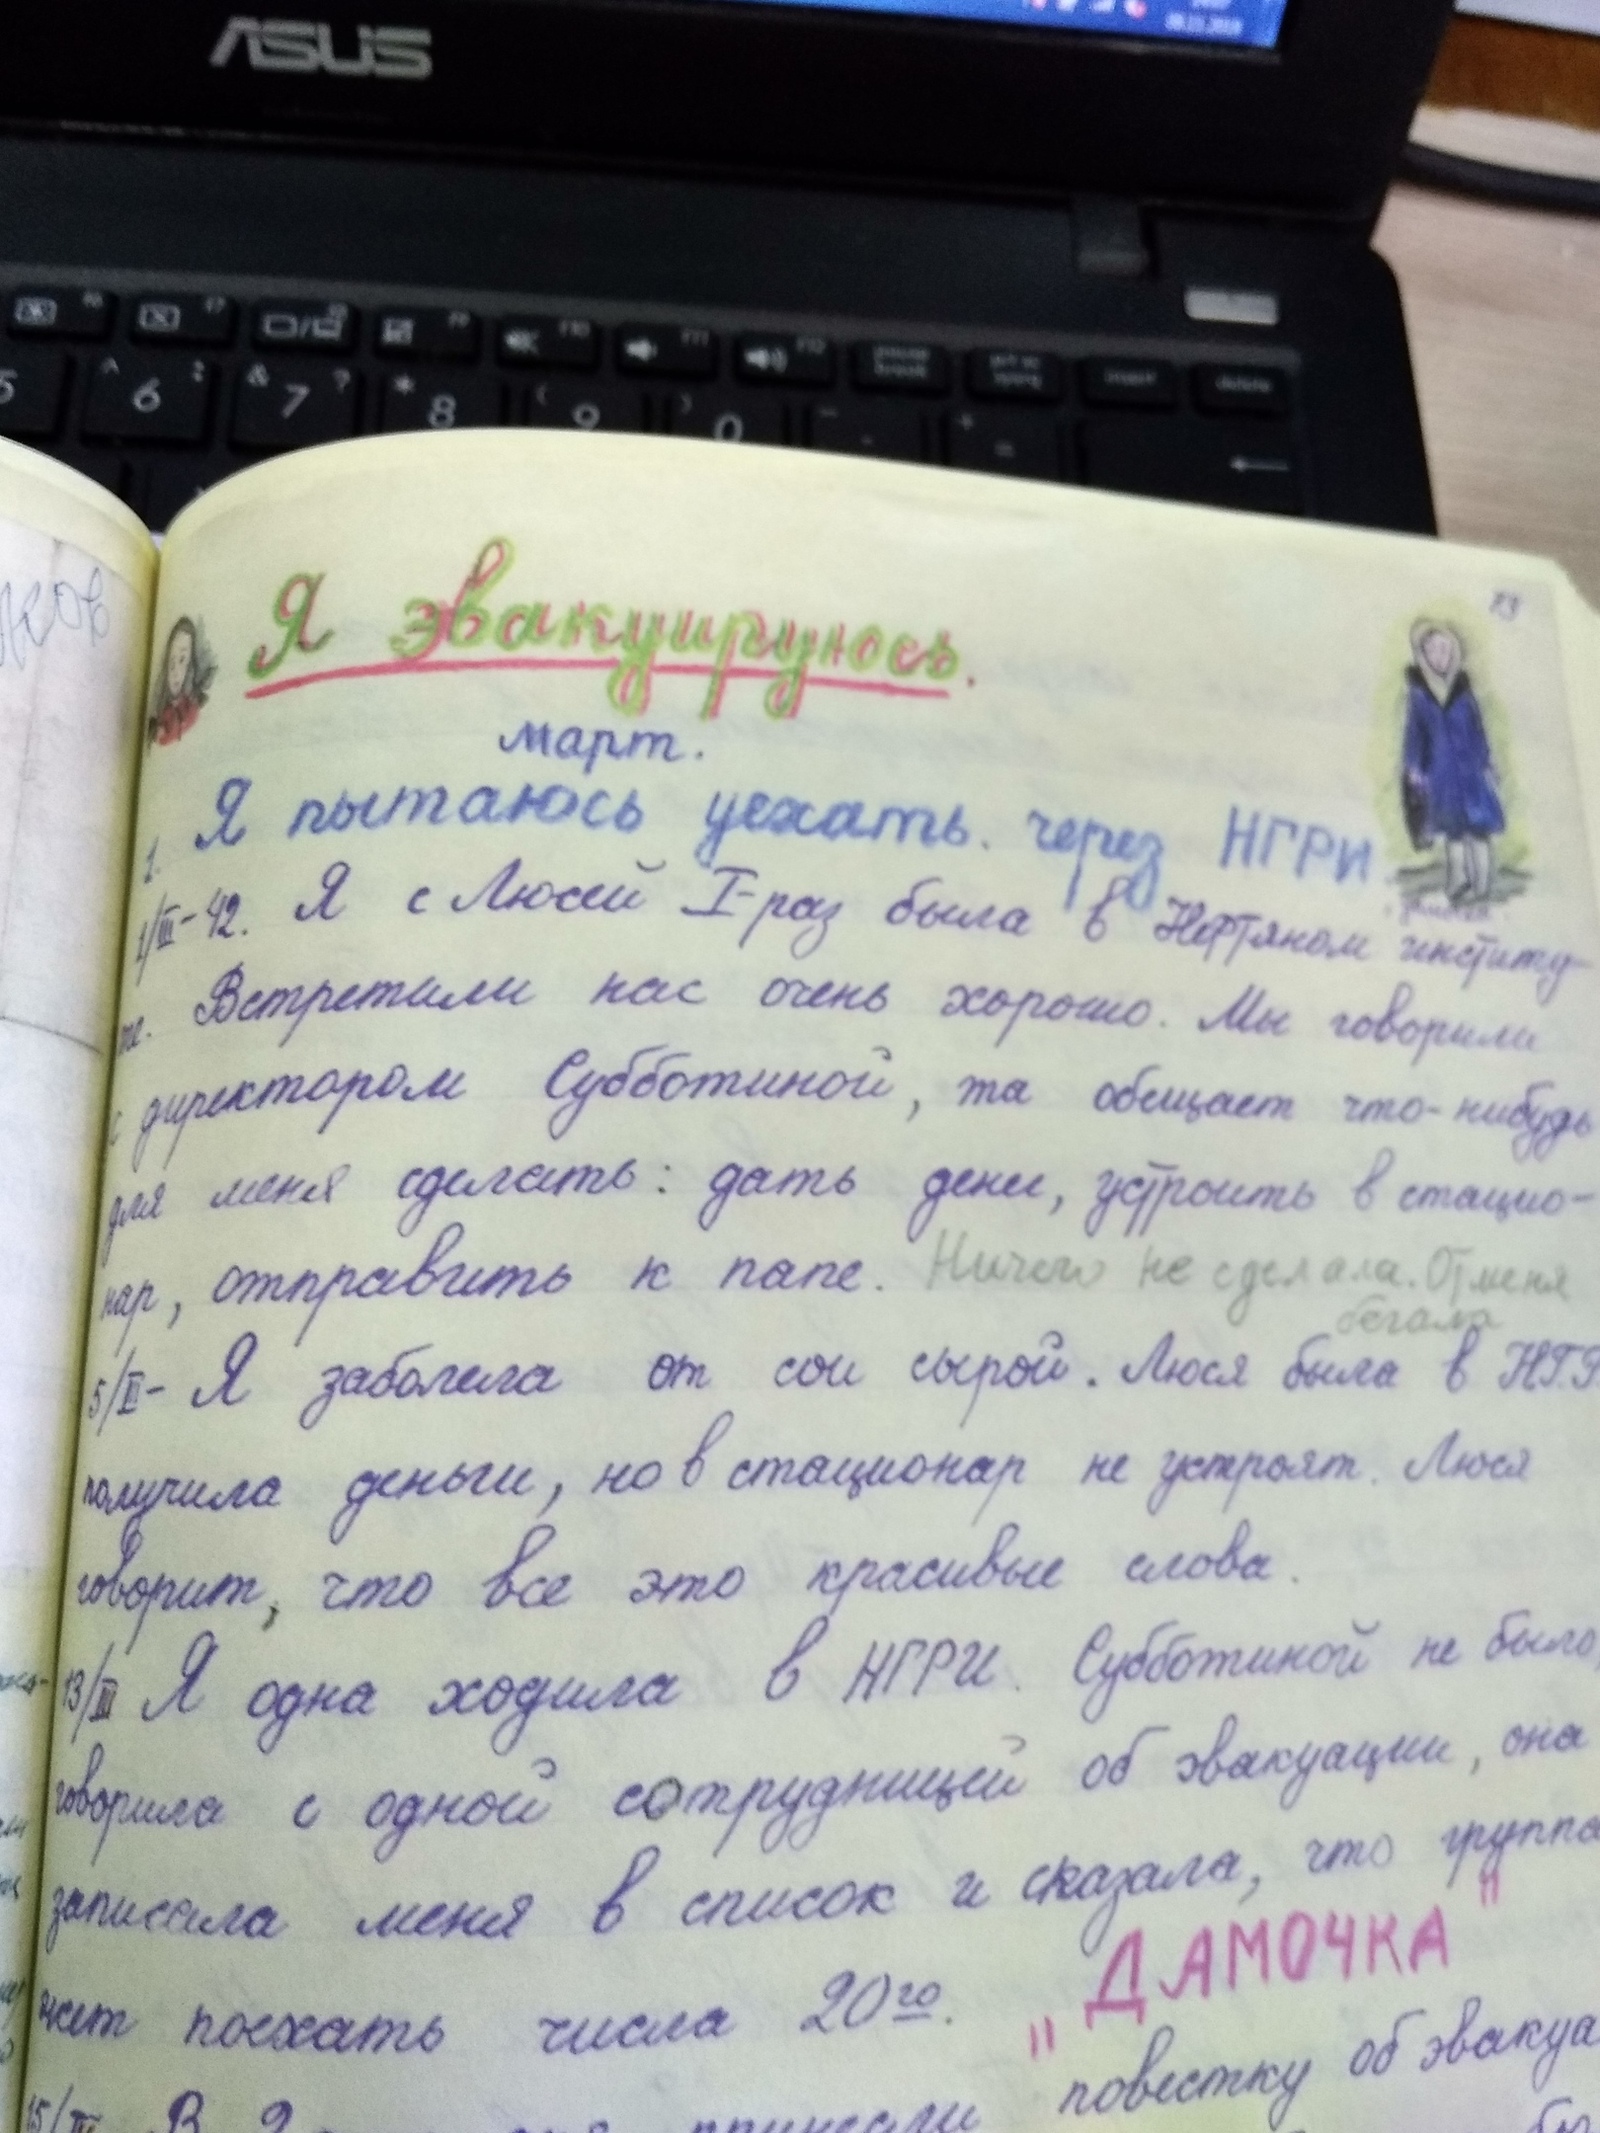 ASUS
6
7
8
9
0
Я эвакуируюсь.
март.
1. Я пытаюсь уехать. через НГРИ
1/III-42. Я с Люсей I-раз была в Нефтяном институ-
те. Встретили нас очень хорошо. Мы говорили
с директором Субботиной, та обещает что-нибудь
для меня сделать: дать денег, устроить в стацио-
нар, отправить к папе. Ничего не сделала. От меня
бегала
5/III- Я заболела от сои сырой. Люся была в НГР
получила деньги, но в стационар не устроят. Люся
говорит, что все это красивые слова.
13/III Я одна ходила в НГРИ. Субботиной не было,
говорила с одной сотрудницей об эвакуации, она
записала меня в список и сказала, что группа
жет поехать числа 20го.
"ДАМОЧКА"
15/III В принесли повестку об эвакуа